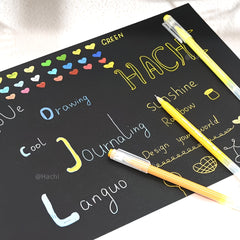 GREEN
HACHI
Drawing
Sunshine
Rainbow
Cool
Journaling
Design your world
@Hachi
Languo